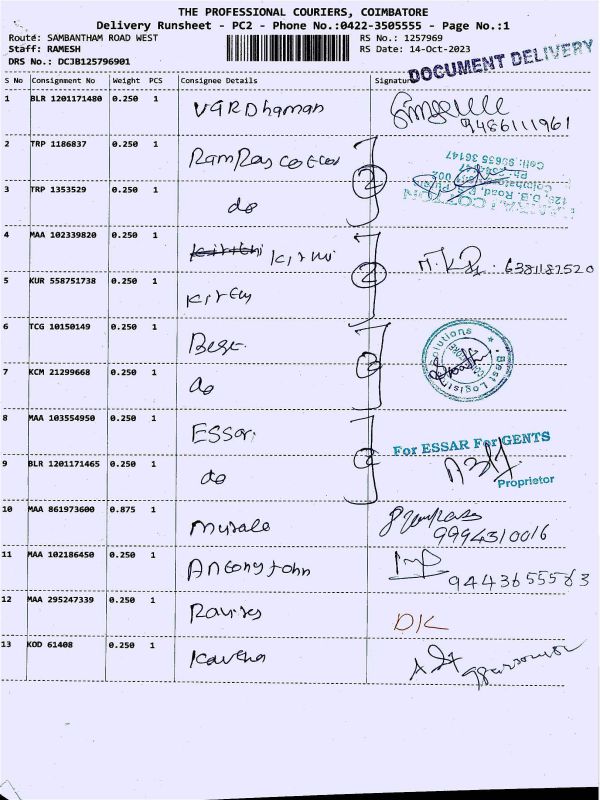 THE PROFESSIONAL COURIERS, COIMBATORE
Delivery Runsheet - PC2 - Phone No.:0422-3505555 - Page No.:1
Route: SAMBANTHAM ROAD WEST RS No.: 1257969
Staff: RAMESH RS Date: 14-Oct-2023
DRS No.: DCJB125796901
DOCUMENT DELIVERY
S No Consignment No Weight PCS Consignee Details Signature
1 BLR 1201171480 0.250 1 VARDhaman
9486111961
2 TRP 1186837 0.250 1 RamRaj cotton
2
Cell: 99655 36147
3 TRP 1353529 0.250 1 do
4 MAA 102339820 0.250 1 Kirthi
2
6381182520
5 KUR 558751738 0.250 1
6 TCG 10150149 0.250 1 Best
2
Best Logistic Solutions
7 KCM 21299668 0.250 1 do
8 MAA 103554950 0.250 1 ESSar
2
For ESSAR For GENTS
9 BLR 1201171465 0.250 1 do
Proprietor
10 MAA 861973600 0.875 1 murale
9994310016
11 MAA 102186450 0.250 1 Antony John
9443655583
12 MAA 295247339 0.250 1
DK
13 KOD 61408 0.250 1 Kavena